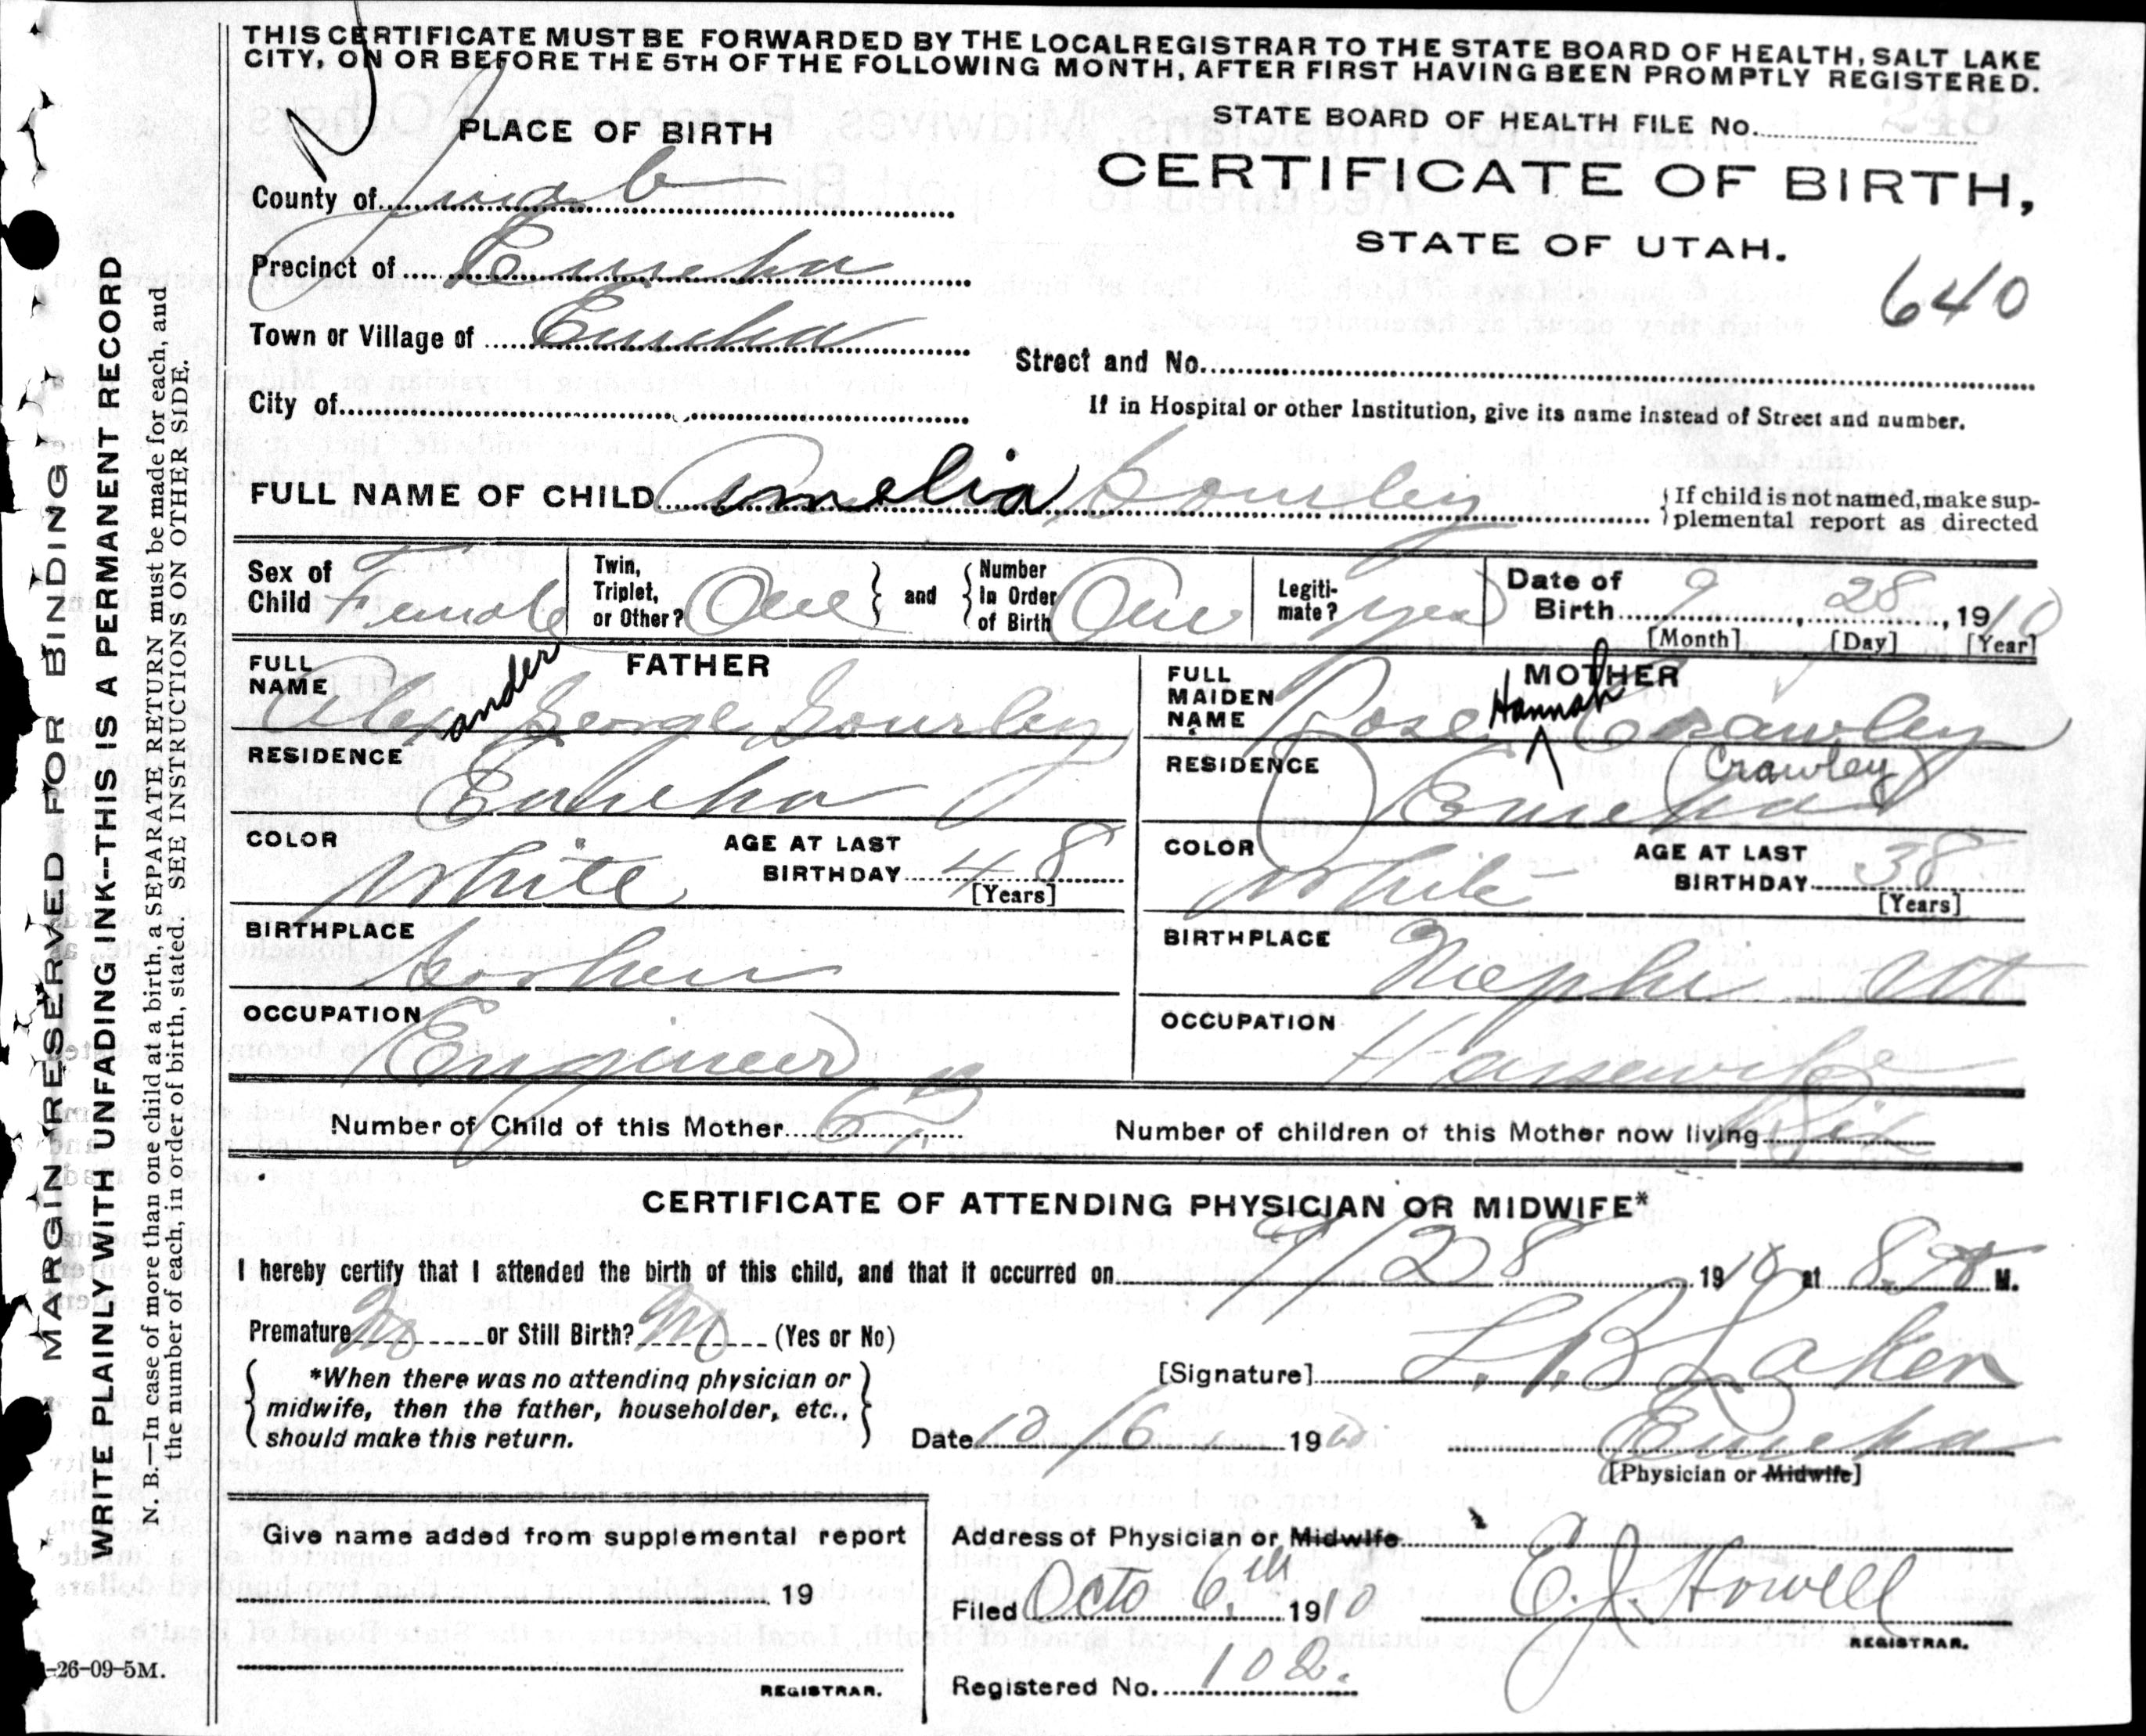 THIS CERTIFICATE MUST BE FORWARDED BY THE LOCAL REGISTRAR TO THE STATE BOARD OF HEALTH, SALT LAKE
CITY, ON OR BEFORE THE 5TH OF THE FOLLOWING MONTH, AFTER FIRST HAVING BEEN PROMPTLY REGISTERED.
PLACE OF BIRTH
STATE BOARD OF HEALTH FILE No.
CERTIFICATE OF BIRTH,
STATE OF UTAH.
640
County of Juab
Precinct of Eureka
Town or Village of Eureka
City of
Street and No.
If in Hospital or other Institution, give its name instead of Street and number.
FULL NAME OF CHILD Amelia Gourley
If child is not named, make sup-
plemental report as directed
Sex of Child Female
Twin, Triplet, or Other? One
and
Number In Order of Birth One
Legiti-mate? yes
Date of Birth 9, 28, 1910
[Month] [Day] [Year]
FATHER
FULL NAME Alexander George Gourley
RESIDENCE Eureka
COLOR White
AGE AT LAST BIRTHDAY 48
[Years]
BIRTHPLACE Goshen
OCCUPATION Engineer
MOTHER
FULL MAIDEN NAME Rose Hannah Crawley
(Crawley)
RESIDENCE Eureka
COLOR White
AGE AT LAST BIRTHDAY 38
[Years]
BIRTHPLACE Nephi Ut
OCCUPATION Housewife
Number of Child of this Mother 6
Number of children of this Mother now living Six
CERTIFICATE OF ATTENDING PHYSICIAN OR MIDWIFE*
I hereby certify that I attended the birth of this child, and that it occurred on 9/28 1910 at 8 M.
Premature No or Still Birth? No (Yes or No)
*When there was no attending physician or
midwife, then the father, householder, etc.,
should make this return.
[Signature] L. B. Laker
Date 10/6 1910
Eureka
[Physician or Midwife]
Give name added from supplemental report
19
REGISTRAR.
Address of Physician or Midwife
Filed Octo 6th 1910
E. J. Howell
REGISTRAR.
Registered No. 102.
MARGIN RESERVED FOR BINDING
WRITE PLAINLY WITH UNFADING INK--THIS IS A PERMANENT RECORD
N. B.—In case of more than one child at a birth, a SEPARATE RETURN must be made for each, and
the number of each, in order of birth, stated. SEE INSTRUCTIONS ON OTHER SIDE.
-26-09-5M.